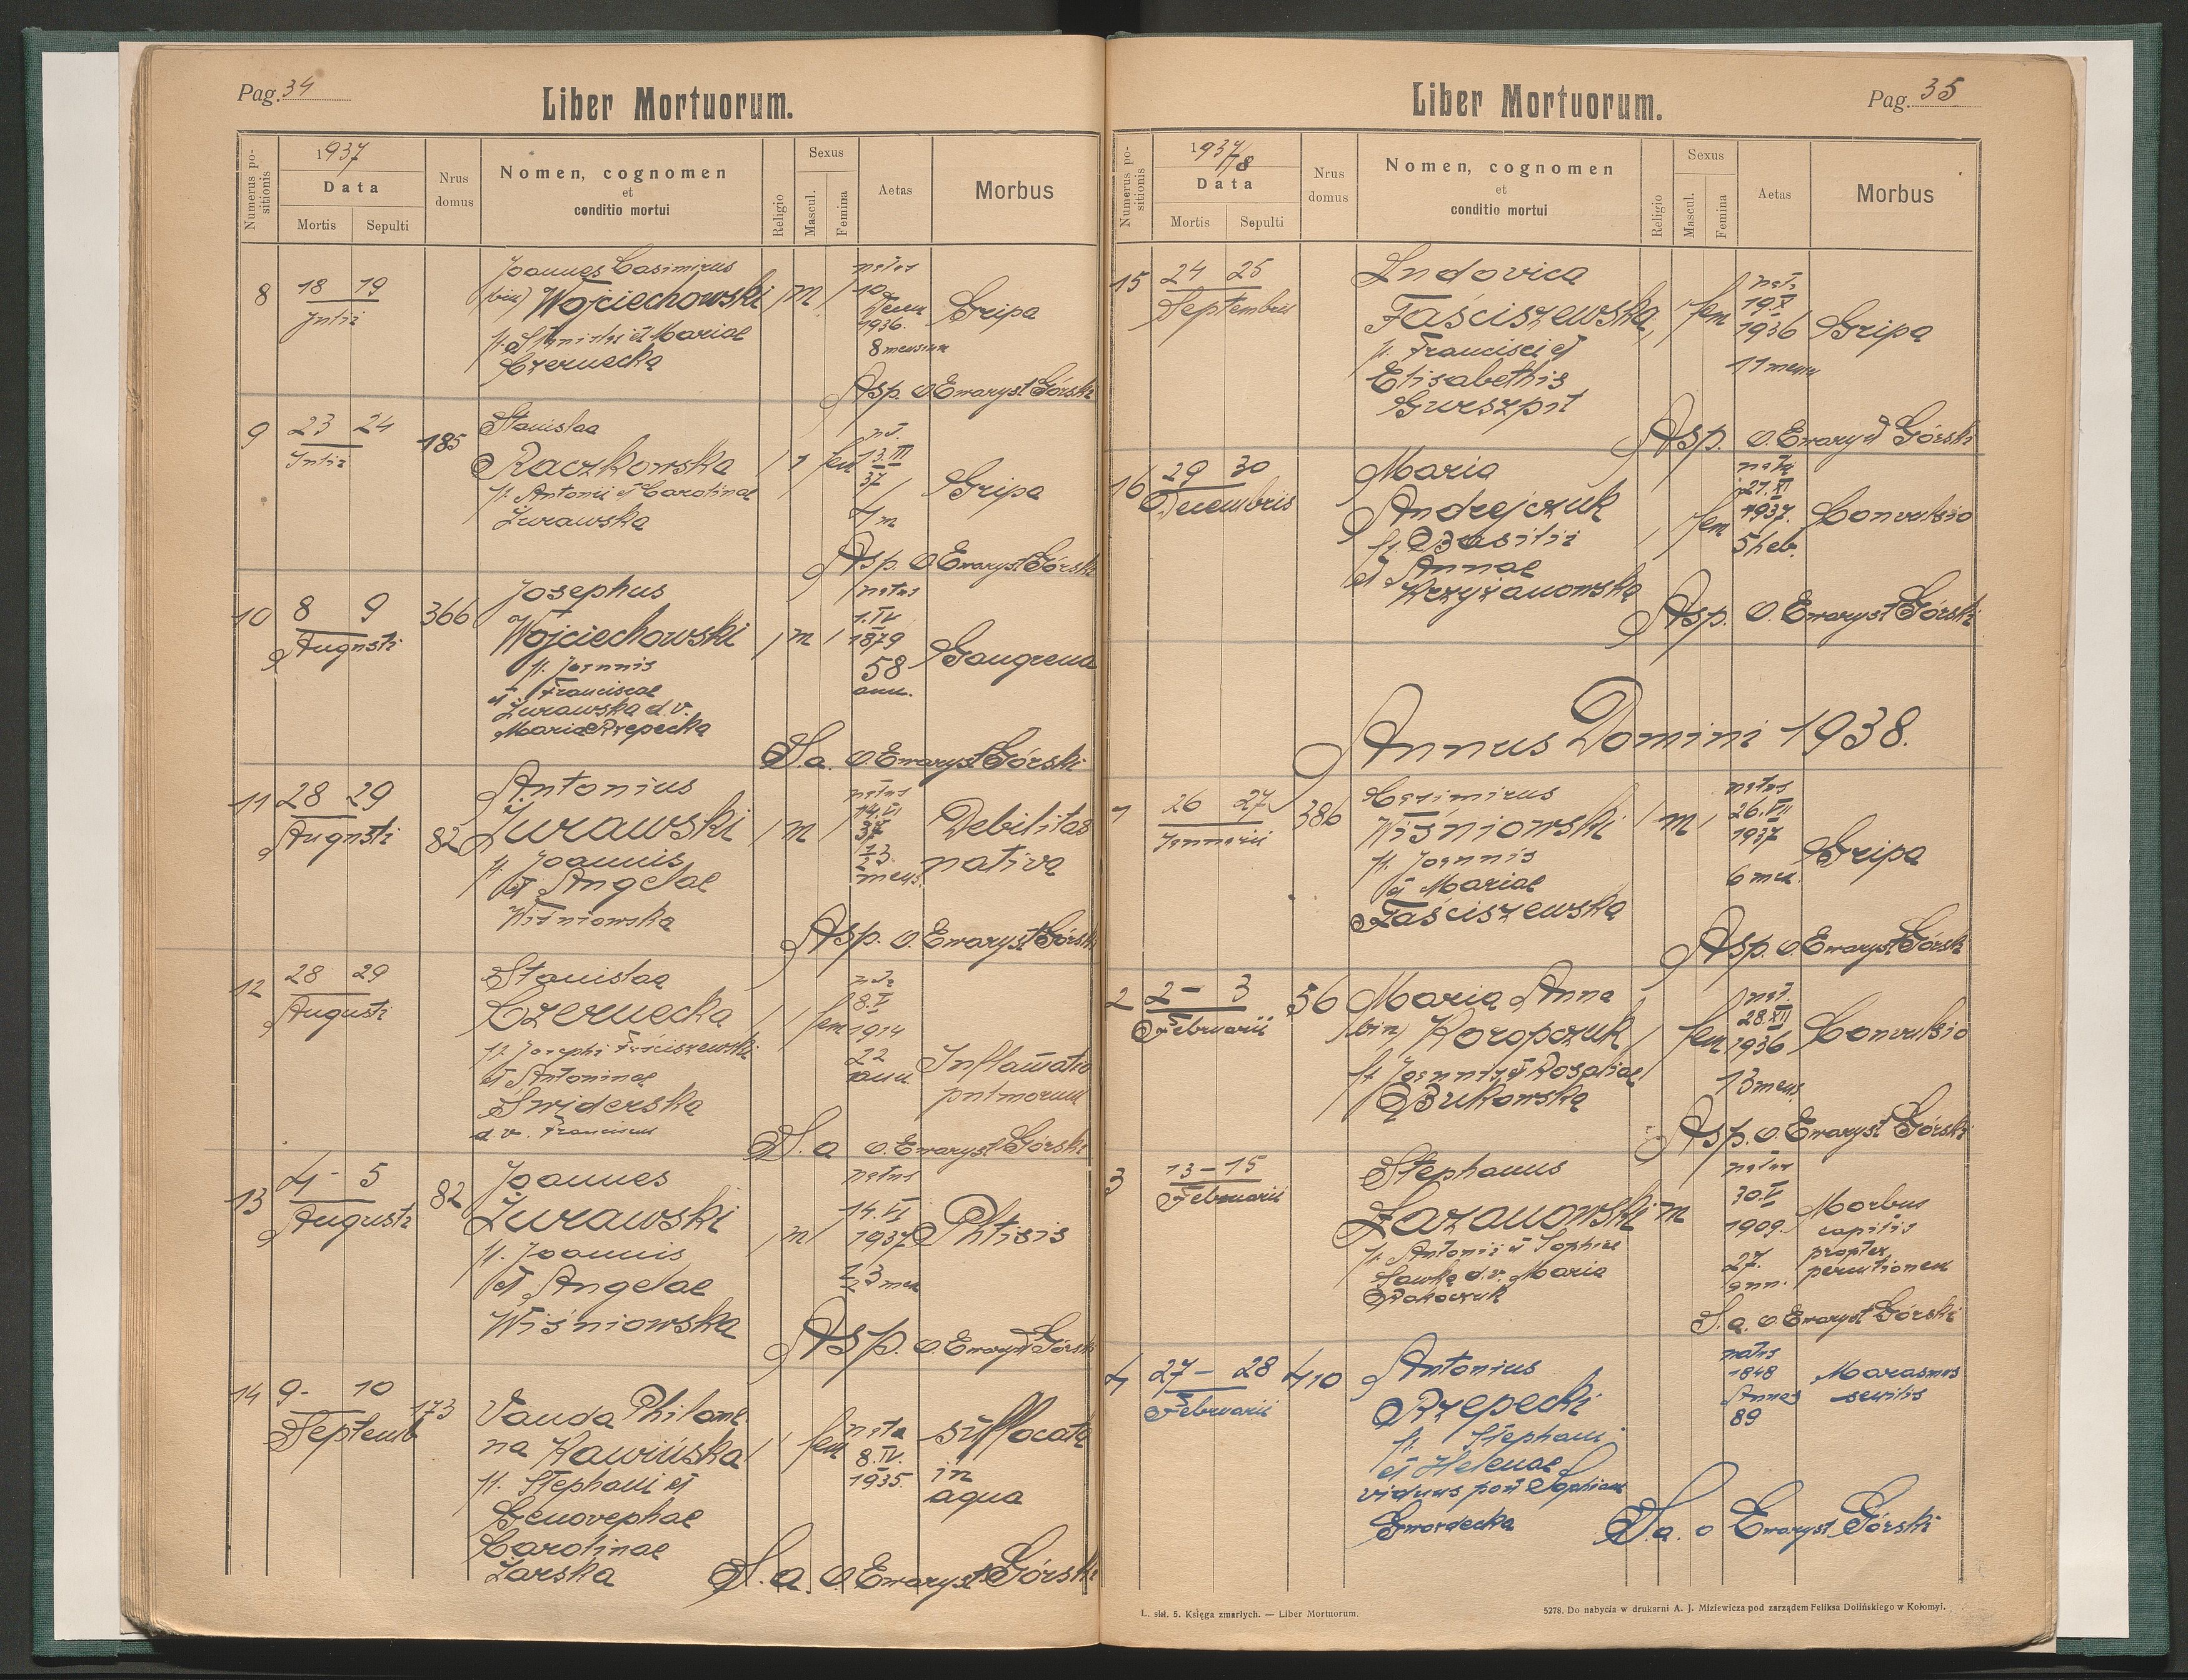 Pag. 34
Liber Mortuorum.
Numerus positionis
1937
Data
Mortis
Sepulti
Nrus domus
Nomen, cognomen
et
conditio mortui
Religio
Sexus
Mascul.
Femina
Aetas
Morbus
8
18 19
Julii
Joannes Casimirus
(bin) Wojciechowski
Czernecka
m
natus
10
1936.
8 mensium
Gripa
Asp. o. Ewaryst Górski
9
23 24
Julii
185
Stanislaa
Raczkowska
fl. Antonii et Carolinae
Żurawska
fem
13.III
37
4 m
Gripa
Asp. o. Ewaryst Górski
10
8 9
Augusti
366
Josephus
Wojciechowski
fl. Joannis
et Franciscae
Żurawska d.v.
Maria Rzepecka
m
natus
1.IV
1879
58
ann.
Gangrena
S.a. o. Ewaryst Górski
11
28 29
Augusti
82
Antonius
Żurawski
fl. Joannis
et Angelae
Wiśniowska
m
natus
14.VI
37
mens.
Debilitas
nativa
Asp. o. Ewaryst Górski
12
28 29
Augusti
Stanislaa
Czernecka
fl. Josephi Faściszewski
et Antoninae
Świderska
d.v. Franciscus
fem
8.V
1914
22
ann.
Inflamatio
pulmorum
S.a o. Ewaryst Górski
13
4 - 5
Augusti
82
Joannes
Żurawski
fl. Joannis
et Angelae
Wiśniowska
m
natus
14.VI
1937
Phtisis
Asp. o. Ewaryst Górski
14
9 - 10
Septemb
173
Vanda Philome-
na Kawińska
fl. Stephani et
Genovephae
Carolinae
Żarska
fem
nata
8.IV.
1935.
suffocata
in
aqua
S.a. o. Ewaryst Górski
Pag. 35
Liber Mortuorum.
Numerus positionis
1937/8
Data
Mortis
Sepulti
Nrus domus
Nomen, cognomen
et
conditio mortui
Religio
Sexus
Mascul.
Femina
Aetas
Morbus
15
24 25
Septembris
Ludovica
Faściszewska
fl. Francisci et
Elisabethis
Gurszpit
fem
nat.
19.X
1936
11 mens
Gripa
Asp. o. Ewaryst Górski
16
29 30
Decembris
Maria
Andrejczuk
fl. Basilii
et Annae
Krzyżanowska
fem
nata
21.XI
1937.
5 heb.
Convulsio
Asp. o. Ewaryst Górski
Annus Domini 1938.
1
26 27
Januarii
386
Casimirus
Wiśniowski
fl. Joannis
et Mariae
Faściszewska
m
natus
26.VII
1937
6 men.
Gripa
Asp. o. Ewaryst Górski
2
2 - 3
Februarii
56
Maria Anna
(bin) Koropczuk
fl. Joannis et Rosaliae
Bukowska
fem
nat.
28.XII
1936
13 mens.
Convulsio
Asp. o. Ewaryst Górski
3
13 - 15
Februarii
Stephanus
Łazanowski
fl. Antonii et Sophiae
Sawka d.v. Maria
m
natus
30.V
1909.
27.
ann.
Morbus
capitis
propter
percutionem
S.a. o. Ewaryst Górski
4
27 - 28
Februarii
410
Antonius
Rzepecki
fl. Stephani
et Helenae
viduus post Sophiam
Gwordecka
natus
1848
Annos
89
Marasmus
senilis
S.a. o Ewaryst Górski
L. skł. 5. Księga zmarłych. — Liber Mortuorum.
5278. Do nabycia w drukarni A. J. Miziewicza pod zarządem Feliksa Dolińskiego w Kołomyi.